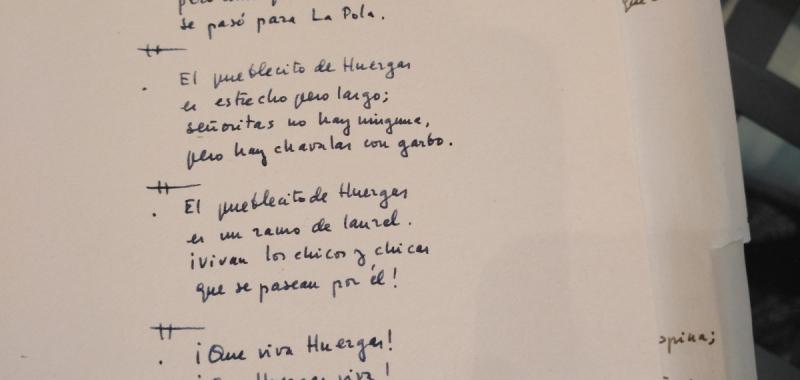 se pasó para La Pola.
El pueblecito de Huergas
es estrecho pero largo;
señoritas no hay ninguna,
pero hay chavalas con garbo.
El pueblecito de Huergas
es un ramo de laurel.
¡Vivan los chicos y chicas
que se pasean por él!
¡Que viva Huergas!
spina;